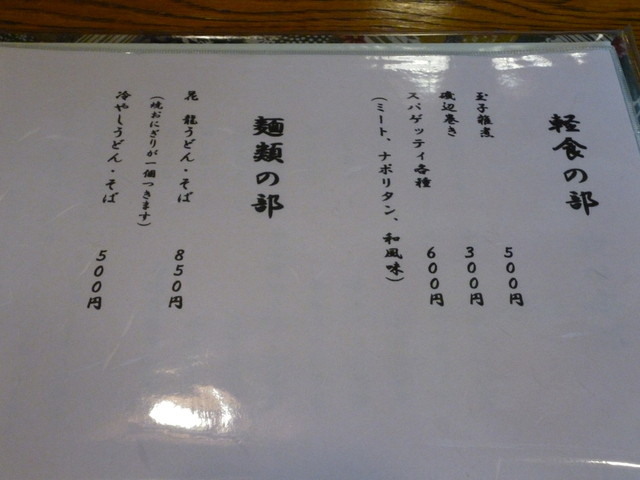 軽食の部
玉子雑煮 500円
磯辺巻き 300円
スパゲッティ各種 600円
(ミート、ナポリタン、和風味)
麺類の部
花龍うどん・そば 850円
(焼おにぎりが一個つきます)
冷やしうどん・そば 500円